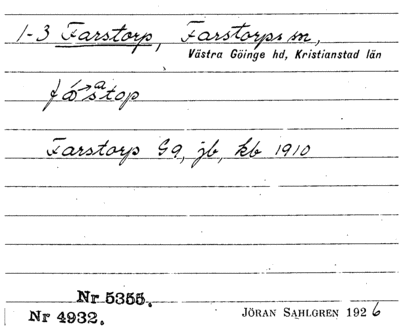 1-3 Farstorp, Farstorps sn,
Västra Göinge hd, Kristianstad län
Farstorp Ga, jb, kb 1910
Nr 5355.
Nr 4932.
JÖRAN SAHLGREN 1926